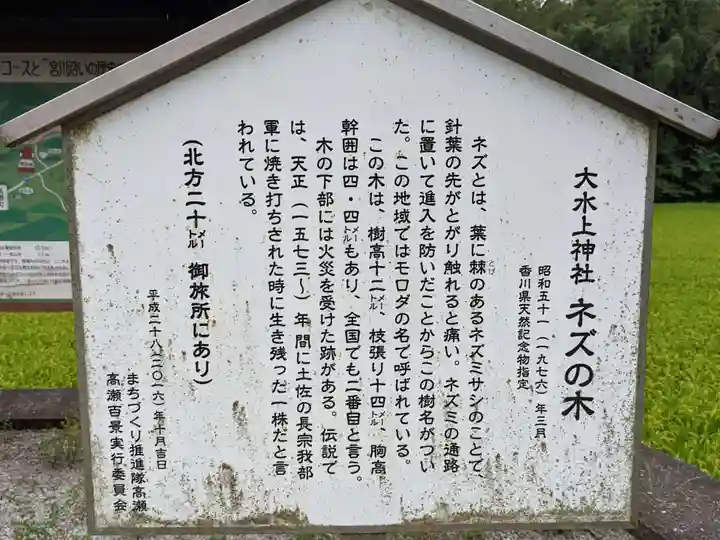 大水上神社 ネズの木
昭和五十一(一九七六)年三月
香川県天然記念物指定
ネズとは、葉に棘のあるネズミサシのことで、
とげ
針葉の先がとがり触れると痛い。ネズミの通路
に置いて進入を防いだことからこの樹名がつい
た。この地域ではモロダの名で呼ばれている。
この木は、樹高十二メートル、枝張り十四メートル、胸高
幹囲は四・四メートルもあり、全国でも二番目と言う。
木の下部には火災を受けた跡がある。伝説で
は、天正(一五七三~)年間に土佐の長宗我部
軍に焼き打ちされた時に生き残った一株だと言
われている。
(北方二十メートル 御旅所にあり)
平成二十八(二〇一六)年十月吉日
まちづくり推進隊高瀬
高瀬百景実行委員会
コースと"宮川沿いの歴史